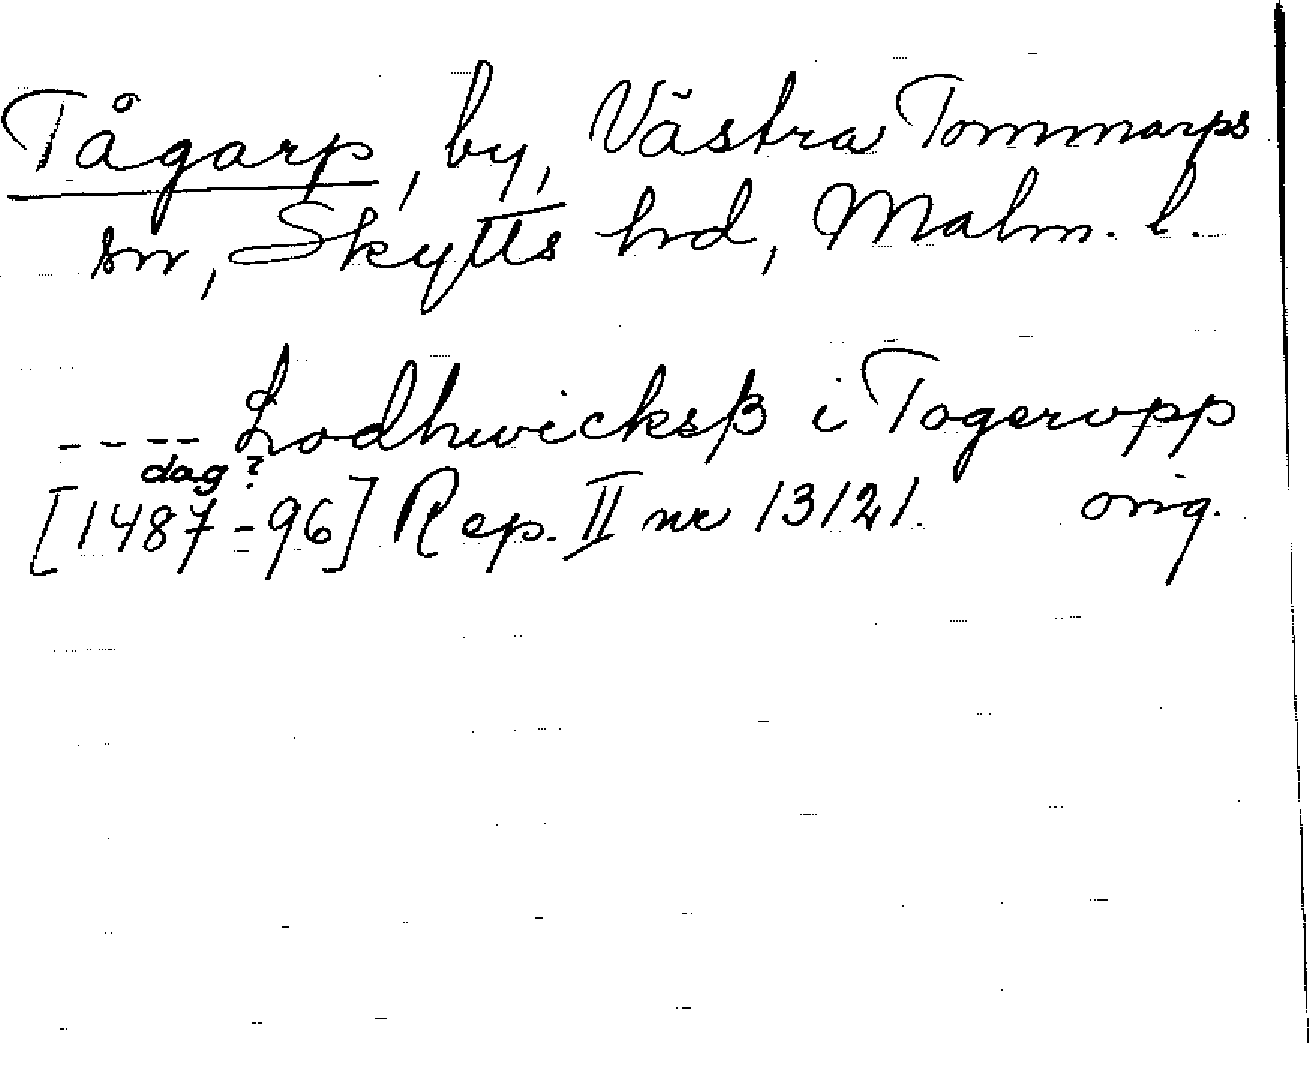 Tågarp, by, Västra Tommarps
sn, Skytts hrd, Malm. l.
---- Lodhwicksß i Togerupp
dag?
[1487-96] Rep. II nr 13121. orig.